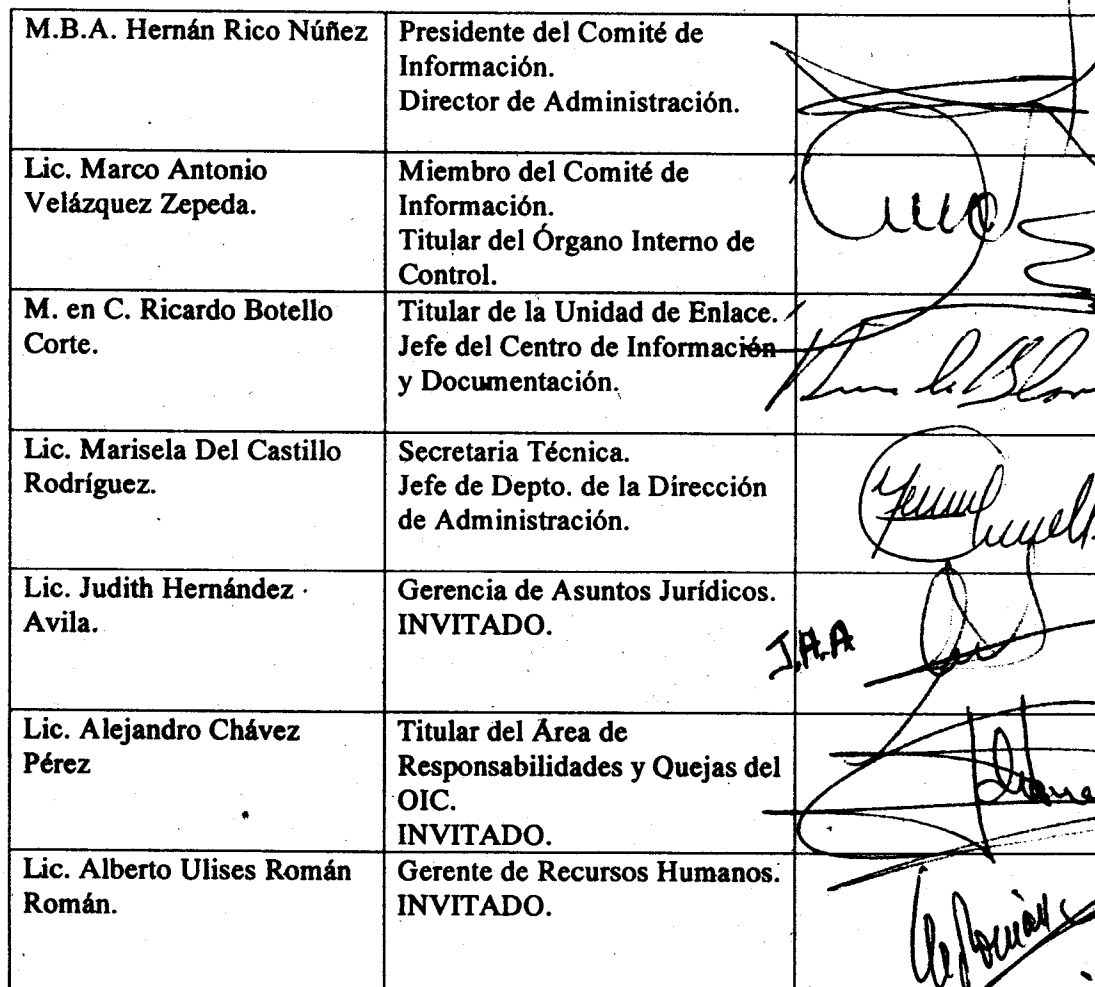 M.B.A. Hernán Rico Núñez
Presidente del Comité de
Información.
Director de Administración.
Lic. Marco Antonio
Velázquez Zepeda.
Miembro del Comité de
Información.
Titular del Órgano Interno de
Control.
M. en C. Ricardo Botello
Corte.
Titular de la Unidad de Enlace.
Jefe del Centro de Información
y Documentación.
Lic. Marisela Del Castillo
Rodríguez.
Secretaria Técnica.
Jefe de Depto. de la Dirección
de Administración.
Lic. Judith Hernández
Avila.
Gerencia de Asuntos Jurídicos.
INVITADO.
J.A.A
Lic. Alejandro Chávez
Pérez
Titular del Área de
Responsabilidades y Quejas del
OIC.
INVITADO.
Lic. Alberto Ulises Román
Román.
Gerente de Recursos Humanos.
INVITADO.